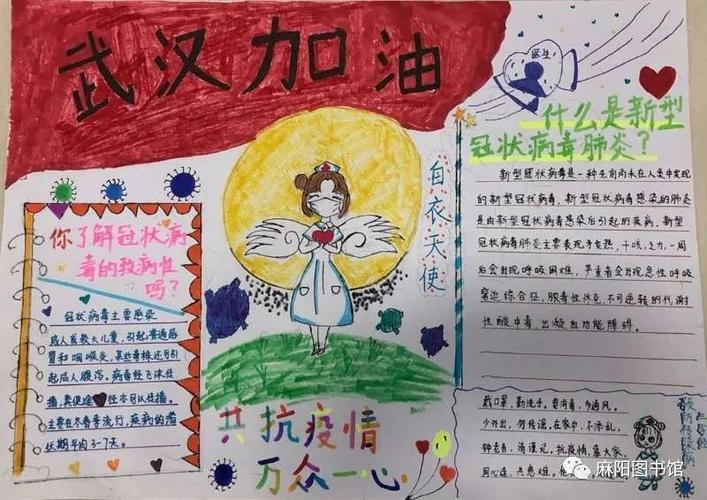 武汉加油
医生
什么是新型
冠状病毒肺炎?
新型冠状病毒是一种先前尚未在人类中发现
的新型冠状病毒,新型冠状病毒感染的肺炎
是由新型冠状病毒感染后引起的疾病,新型
冠状病毒肺炎主要表现为发热,干咳,乏力,一周
后会出现呼吸困难,严重者会出现急性呼吸
窘迫综合征,脓毒性休克,不可逆转的代谢
性酸中毒,出凝血功能障碍。
白衣天使
你了解冠状病
毒的致病性
吗?
冠状病毒主要感染
成人或较大儿童,引起普通感
冒和咽喉炎,某些毒株还可引
起成人腹泻。病毒经飞沫传
播,粪便途径亦可以传播。
主要在冬春季流行,疾病的潜
伏期平均3-7天。
共抗疫情
万众一心
戴口罩,勤洗手,要消毒,多通风。
少外出,勿传谣,在家中,不添乱。
钟老言,须谨记,抗疫情,靠大家。
同心连,共患难,
麻阳图书馆